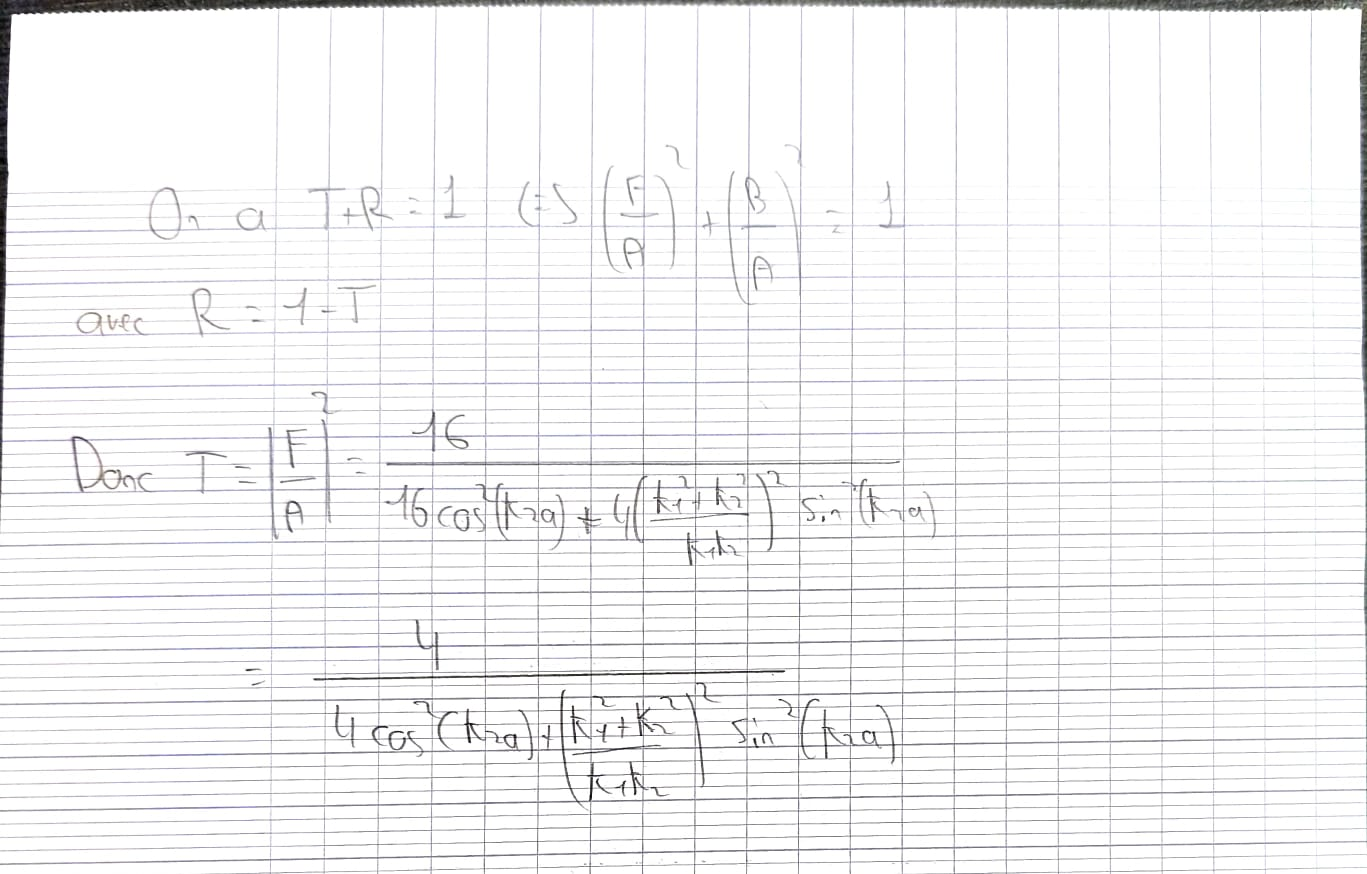 On a T+R = 1 (=> (F/A)² + (B/A)² = 1
avec R = 1-T
Donc T = |F/A|² = 16 / (16 cos²(k₂a) + 4((k₁² + k₂²)/(k₁k₂))² sin²(k₂a))
= 4 / (4 cos²(k₂a) + ((k₁² + k₂²)/(k₁k₂))² sin²(k₂a))